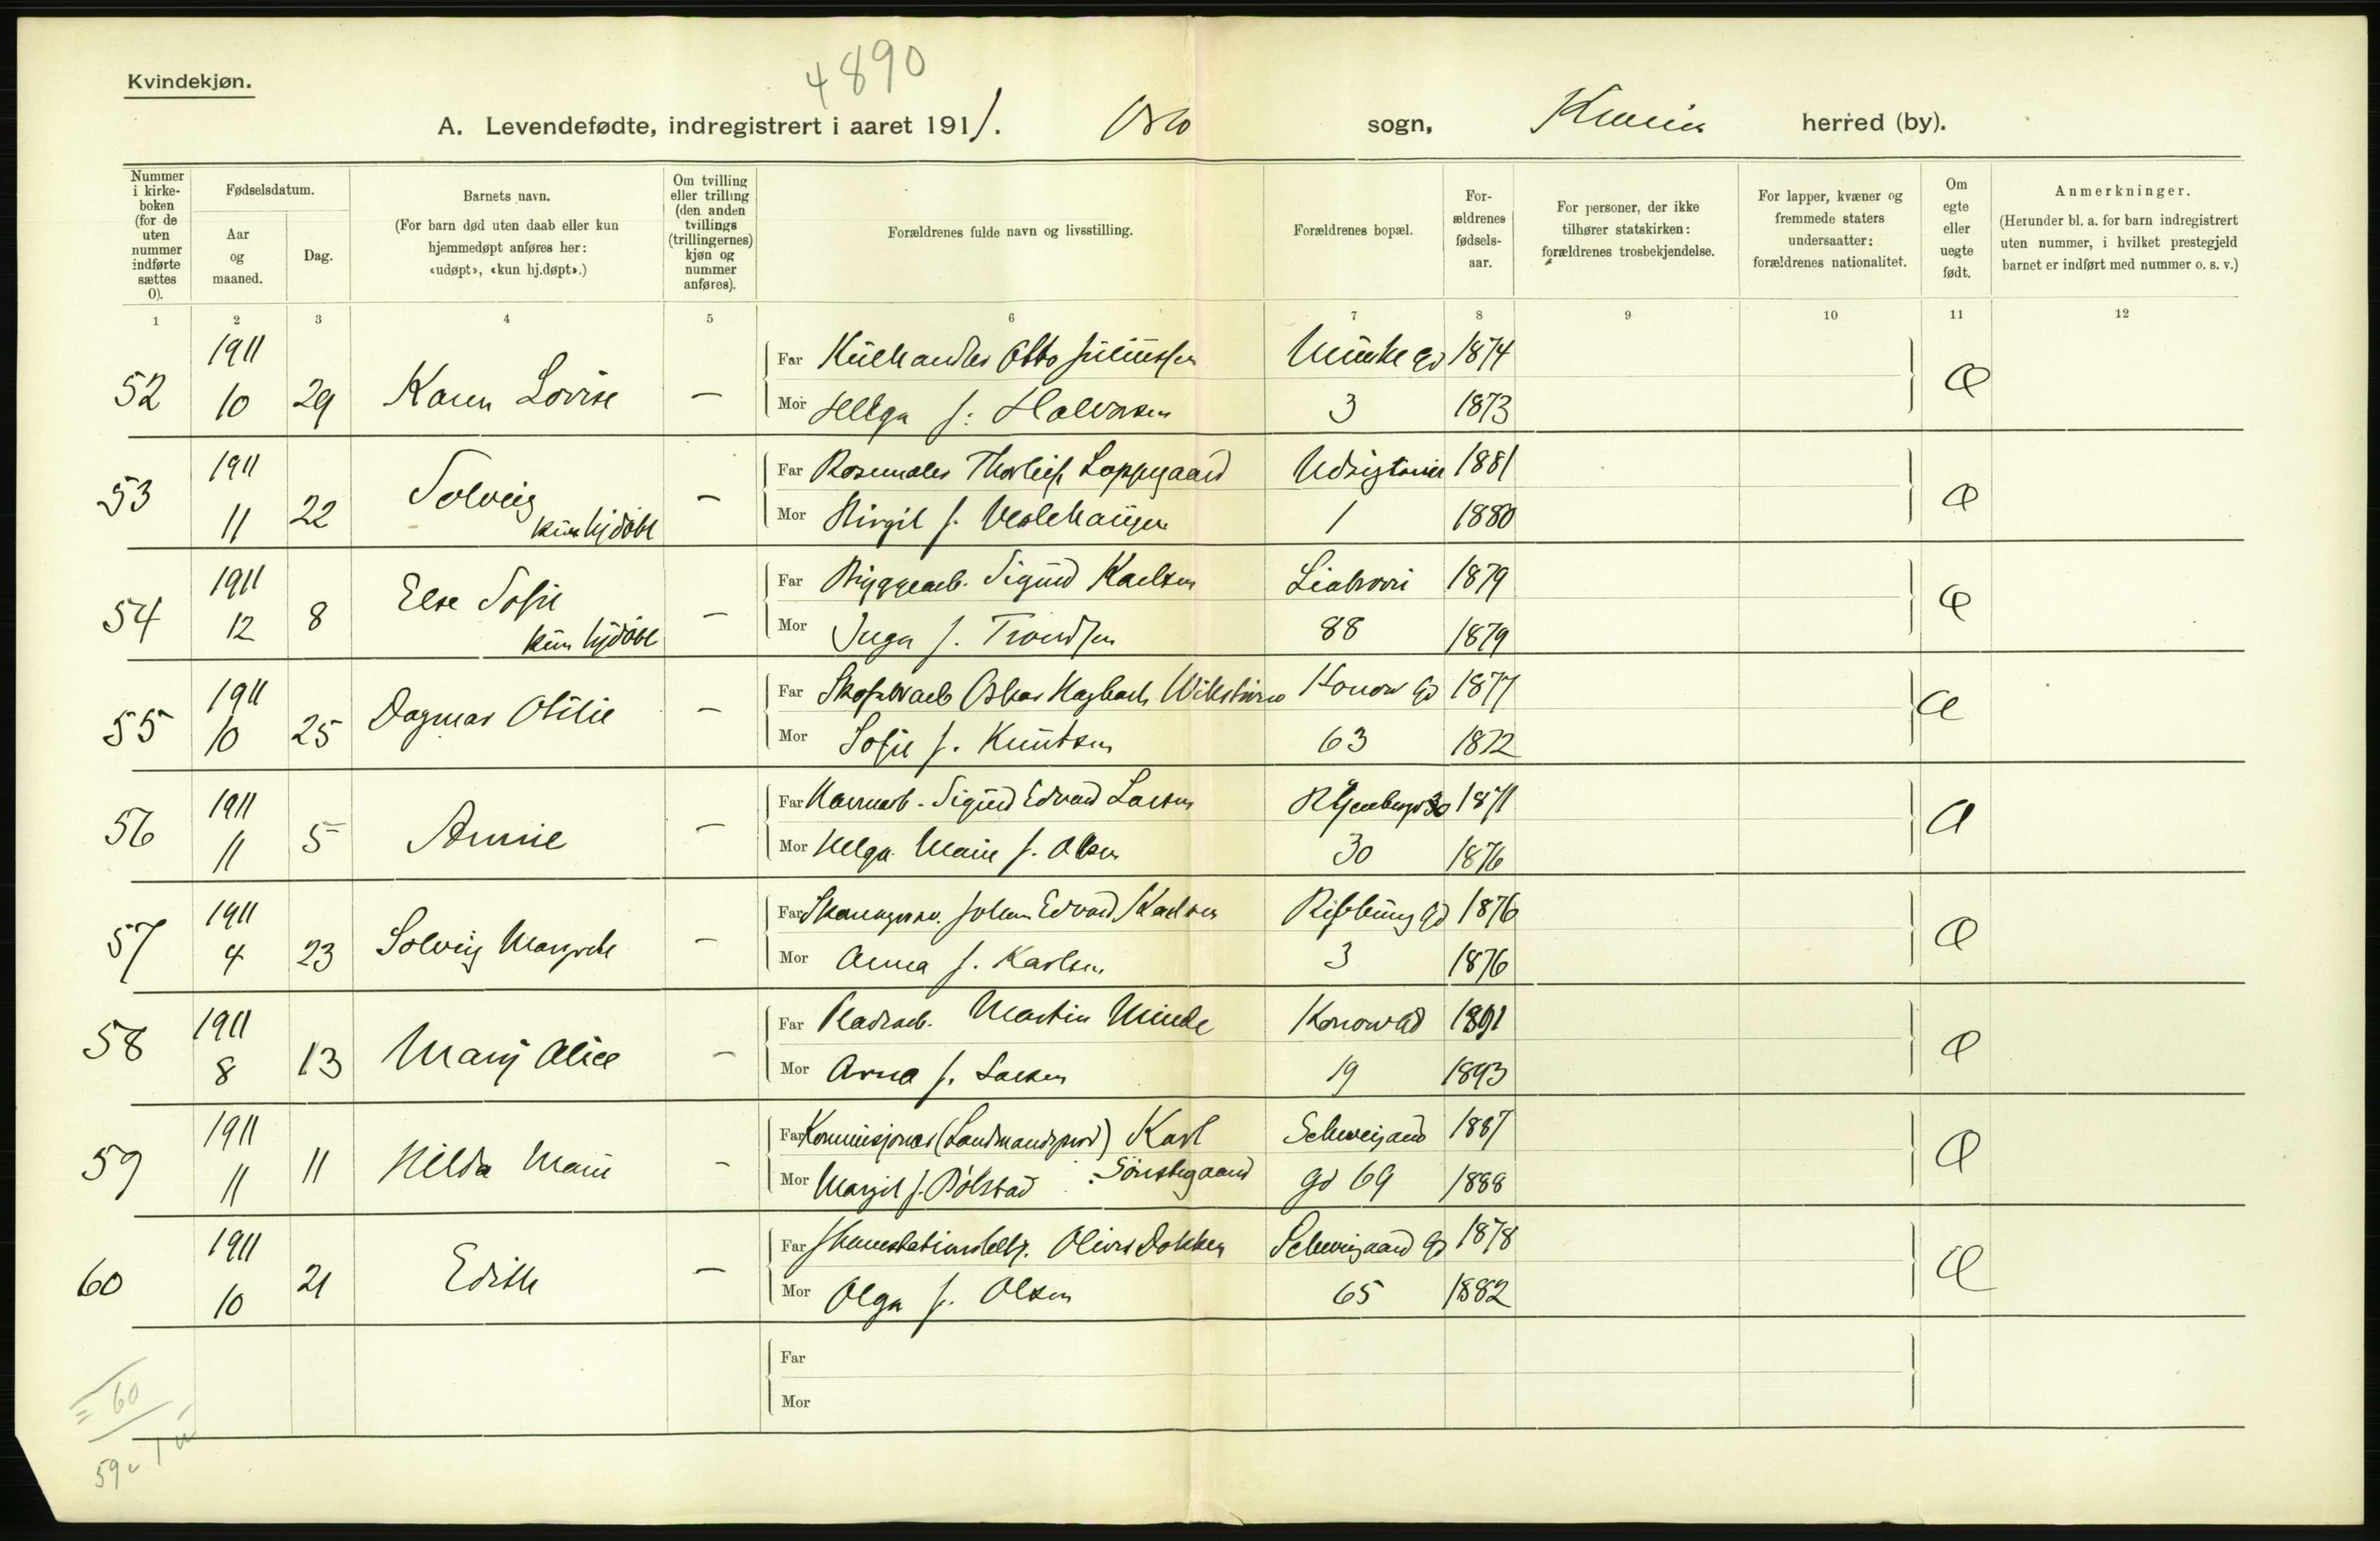 4890
Kvindekjøn.
A. Levendefødte, indregistrert i aaret 1911. Oslo sogn, Kristia herred (by).
Nummer i kirkeboken (for de uten nummer indførte sættes 0).
Fødselsdatum.
Aar og maaned.
Dag.
Barnets navn.
(For barn død uten daab eller kun hjemmedøpt anføres her: «udøpt», «kun hj.døpt».)
Om tvilling eller trilling (den anden tvillings (trillingernes) kjøn og nummer anføres).
Forældrenes fulde navn og livsstilling.
Forældrenes bopæl.
Forældrenes fødselsaar.
For personer, der ikke tilhører statskirken: forældrenes trosbekjendelse.
For lapper, kvæner og fremmede staters undersaatter: forældrenes nationalitet.
Om egte eller uegte født.
Anmerkninger.
(Herunder bl. a. for barn indregistrert uten nummer, i hvilket prestegjeld barnet er indført med nummer o. s. v.)
1 2 3 4 5 6 7 8 9 10 11 12
1911 Far Kulhandler Otto Juliussen Munke gd 1874
52 10 29 Karen Lovise — Mor Helga f. Halvorsen 3 1873 Æ
1911 Far Thorleif Loppegaard 1881
53 11 22 Solveig kun hjdøbt — Mor Birgit f. 1 1880 Æ
1911 Far Byggearb. Sigurd Karlsen Liabrovei 1879
54 12 8 Else Sofie kun hjdøbt — Mor Inga f. Trondsen 88 1879 Æ
1911 Far Oskar Hagbart Wikstrøm Konow gd 1877
55 10 25 Dagmar Otilie — Mor Sofie f. Knutsen 63 1872 Æ
1911 Far Havnearb. Sigurd Edvard Larsen 30 1871
56 11 5 Annie — Mor Helga Marie f. Olsen 30 1876 Æ
1911 Far Johan Edvard Karlsen gd 1876
57 4 23 Solveig Margrete — Mor Anna f. Karlsen 3 1876 Æ
1911 Far Pladsarb. Martin Minde Konow Gd 1891
58 8 13 Mary Alice — Mor Anna f. Larsen 19 1893 Æ
1911 Far Kommisjonær (Landmandsprod) Karl Schweigaard 1887
59 11 11 Hilda Marie - Mor Margit f. Bölstad Sönstegaard gd 69 1888 Æ
1911 Far Oliver Dokken Schweigaard Gd 1878
60 10 21 Edith — Mor Olga f. Olsen 65 1882 Æ
Far
Mor
= 60
59